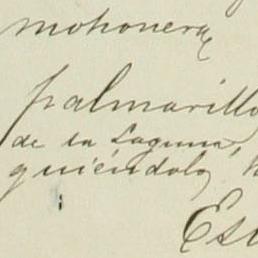 mohonera
palmarillo
de la Laguna,
guiéndolo
Est